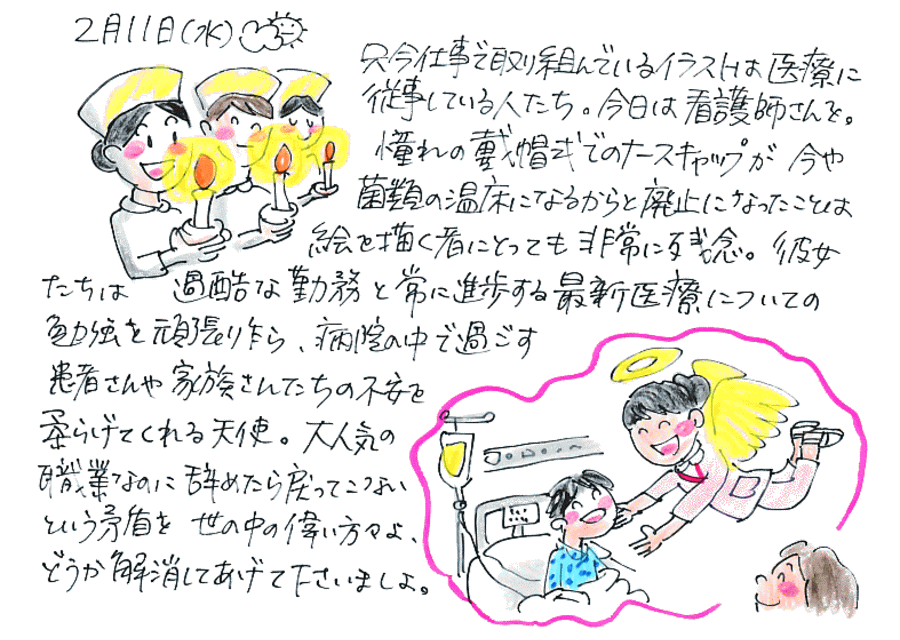 2月11日(水)
只今仕事で取り組んでいるイラストは医療に
従事している人たち。今日は看護師さんを。
憧れの戴帽式でのナースキャップが今や
菌類の温床になるからと廃止になったことは
絵を描く者にとっても非常に残念。彼女
たちは 過酷な勤務と常に進歩する最新医療についての
勉強を頑張り乍ら、病院の中で過ごす
患者さんや家族さんたちの不安を
柔らげてくれる天使。大人気の
職業なのに辞めたら戻ってこない
という矛盾を世の中の偉い方々よ、
どうか解消してあげて下さいましよ。